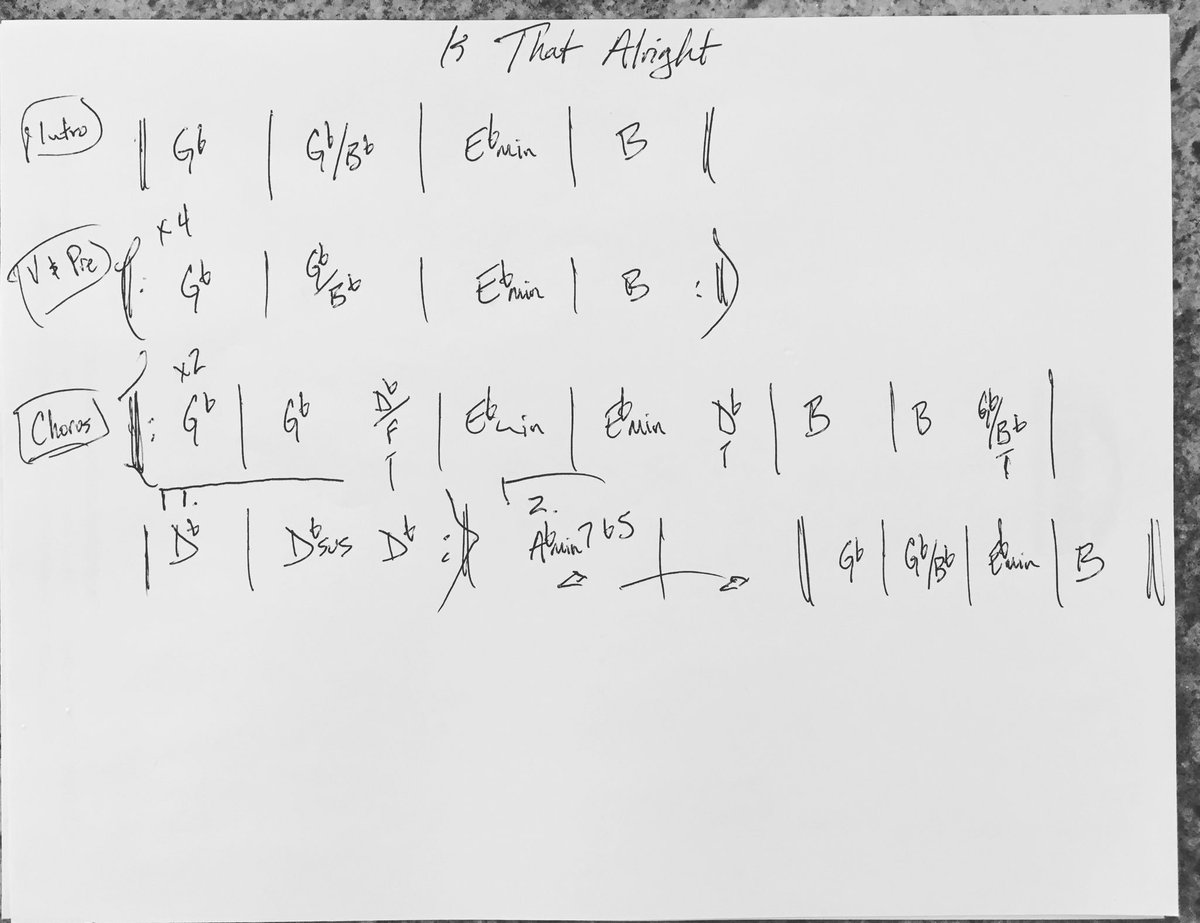 Is That Alright
Intro || G♭ | G♭/B♭ | E♭min | B ||
x4
V & Pre ||: G♭ | G♭/B♭ | E♭min | B :||
x2
Chorus ||: G♭ | G♭ D♭/F | E♭min | E♭min D♭ | B | B G♭/B♭ |
1. 2.
| D♭ | D♭sus D♭ :|| A♭min7♭5 | || G♭ | G♭/B♭ | E♭min | B ||